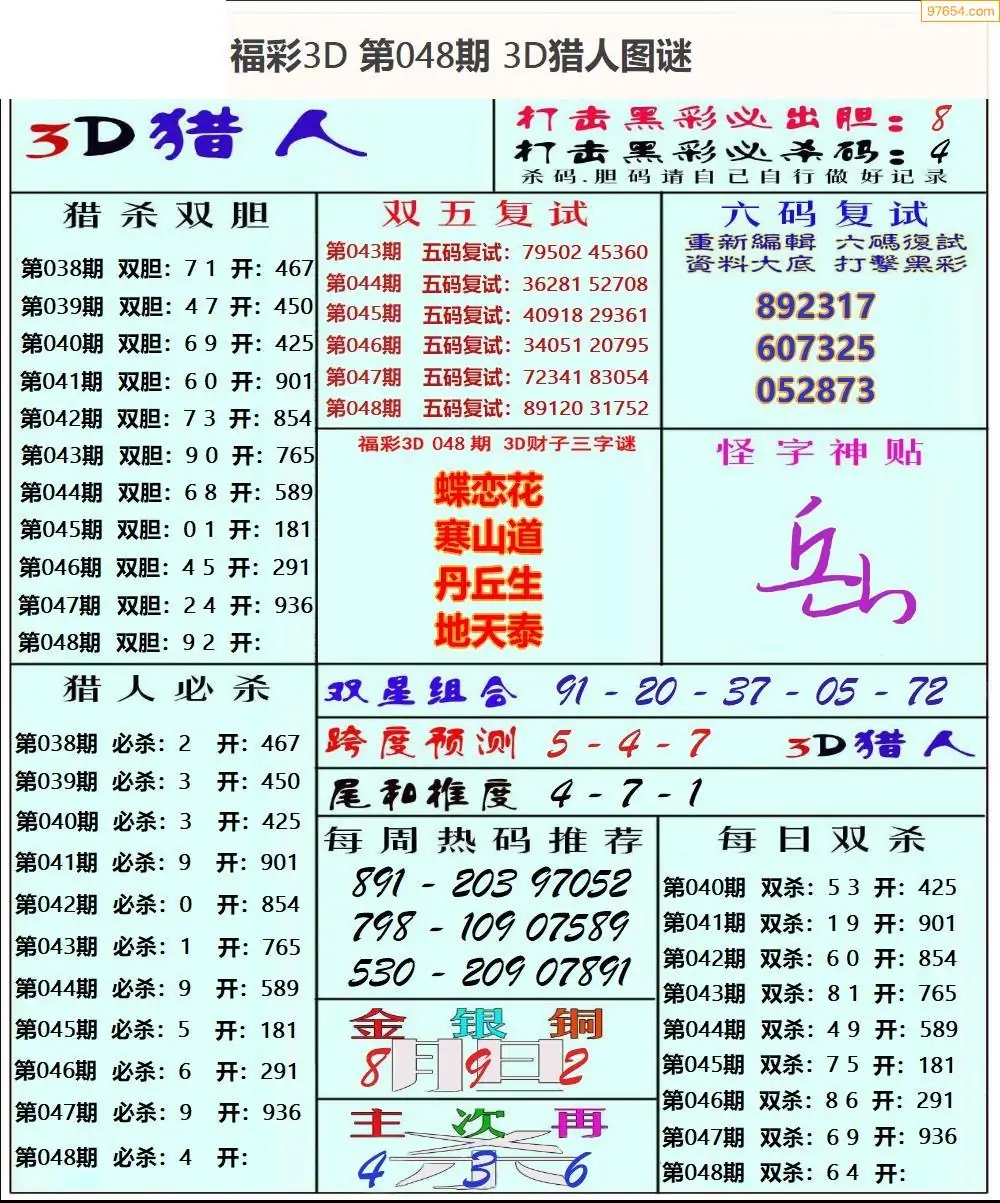 97654.com
福彩3D 第048期 3D猎人图谜
3D猎人
打击黑彩必出胆：8
打击黑彩必杀码：4
杀码.胆码请自己自行做好记录
猎杀双胆
第038期 双胆：7 1 开：467
第039期 双胆：4 7 开：450
第040期 双胆：6 9 开：425
第041期 双胆：6 0 开：901
第042期 双胆：7 3 开：854
第043期 双胆：9 0 开：765
第044期 双胆：6 8 开：589
第045期 双胆：0 1 开：181
第046期 双胆：4 5 开：291
第047期 双胆：2 4 开：936
第048期 双胆：9 2 开：
双五复试
第043期 五码复试：79502 45360
第044期 五码复试：36281 52708
第045期 五码复试：40918 29361
第046期 五码复试：34051 20795
第047期 五码复试：72341 83054
第048期 五码复试：89120 31752
六码复试
重新編輯 六碼復試
資料大底 打擊黑彩
892317
607325
052873
福彩3D 048 期 3D财子三字谜
蝶恋花
寒山道
丹丘生
地天泰
怪字神贴
岳
猎人必杀
第038期 必杀：2 开：467
第039期 必杀：3 开：450
第040期 必杀：3 开：425
第041期 必杀：9 开：901
第042期 必杀：0 开：854
第043期 必杀：1 开：765
第044期 必杀：9 开：589
第045期 必杀：5 开：181
第046期 必杀：6 开：291
第047期 必杀：9 开：936
第048期 必杀：4 开：
双星组合 91 - 20 - 37 - 05 - 72
跨度预测 5 - 4 - 7 3D猎人
尾和推度 4 - 7 - 1
每周热码推荐
891 - 203 97052
798 - 109 07589
530 - 209 07891
金银铜
胆
8 9 2
主次再
杀
4 3 6
每日双杀
第040期 双杀：5 3 开：425
第041期 双杀：1 9 开：901
第042期 双杀：6 0 开：854
第043期 双杀：8 1 开：765
第044期 双杀：4 9 开：589
第045期 双杀：7 5 开：181
第046期 双杀：8 6 开：291
第047期 双杀：6 9 开：936
第048期 双杀：6 4 开：